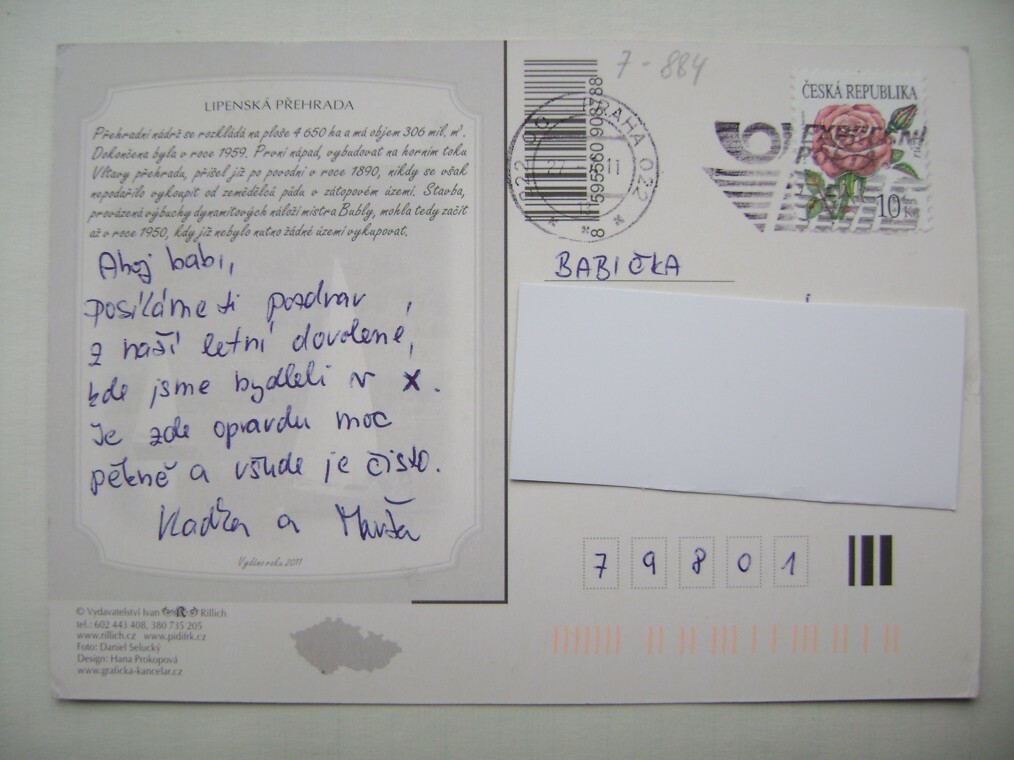 LIPENSKÁ PŘEHRADA
Přehradní nádrž se rozkládá na ploše 4 650 ha a má objem 306 mil. m³.
Dokončena byla v roce 1959. První nápad, vybudovat na horním toku
Vltavy přehradu, přišel již po povodni v roce 1890, nikdy se však
nepodařilo vykoupit od zemědělců půdu v zátopovém území. Stavba,
provázená výbuchy dynamitových náloží mistra Bubly, mohla tedy začít
až v roce 1950, kdy již nebylo nutno žádné území vykupovat.
Ahoj babi,
posíláme ti pozdrav
z naší letní dovolené,
kde jsme bydleli v X.
Je zde opravdu moc
pěkně a všude je čisto.
Kadča a
Vydáno roku 2011
© Vydavatelství Ivan R Rillich
tel.: 602 443 408, 380 735 205
www.rillich.cz www.pidifrk.cz
Foto: Daniel Selucký
Design: Hana Prokopová
www.graficka-kancelar.cz
7-884
8 595560 908788
PRAHA 022
ČESKÁ REPUBLIKA
10 Kč
BABIČKA
7 9 8 0 1